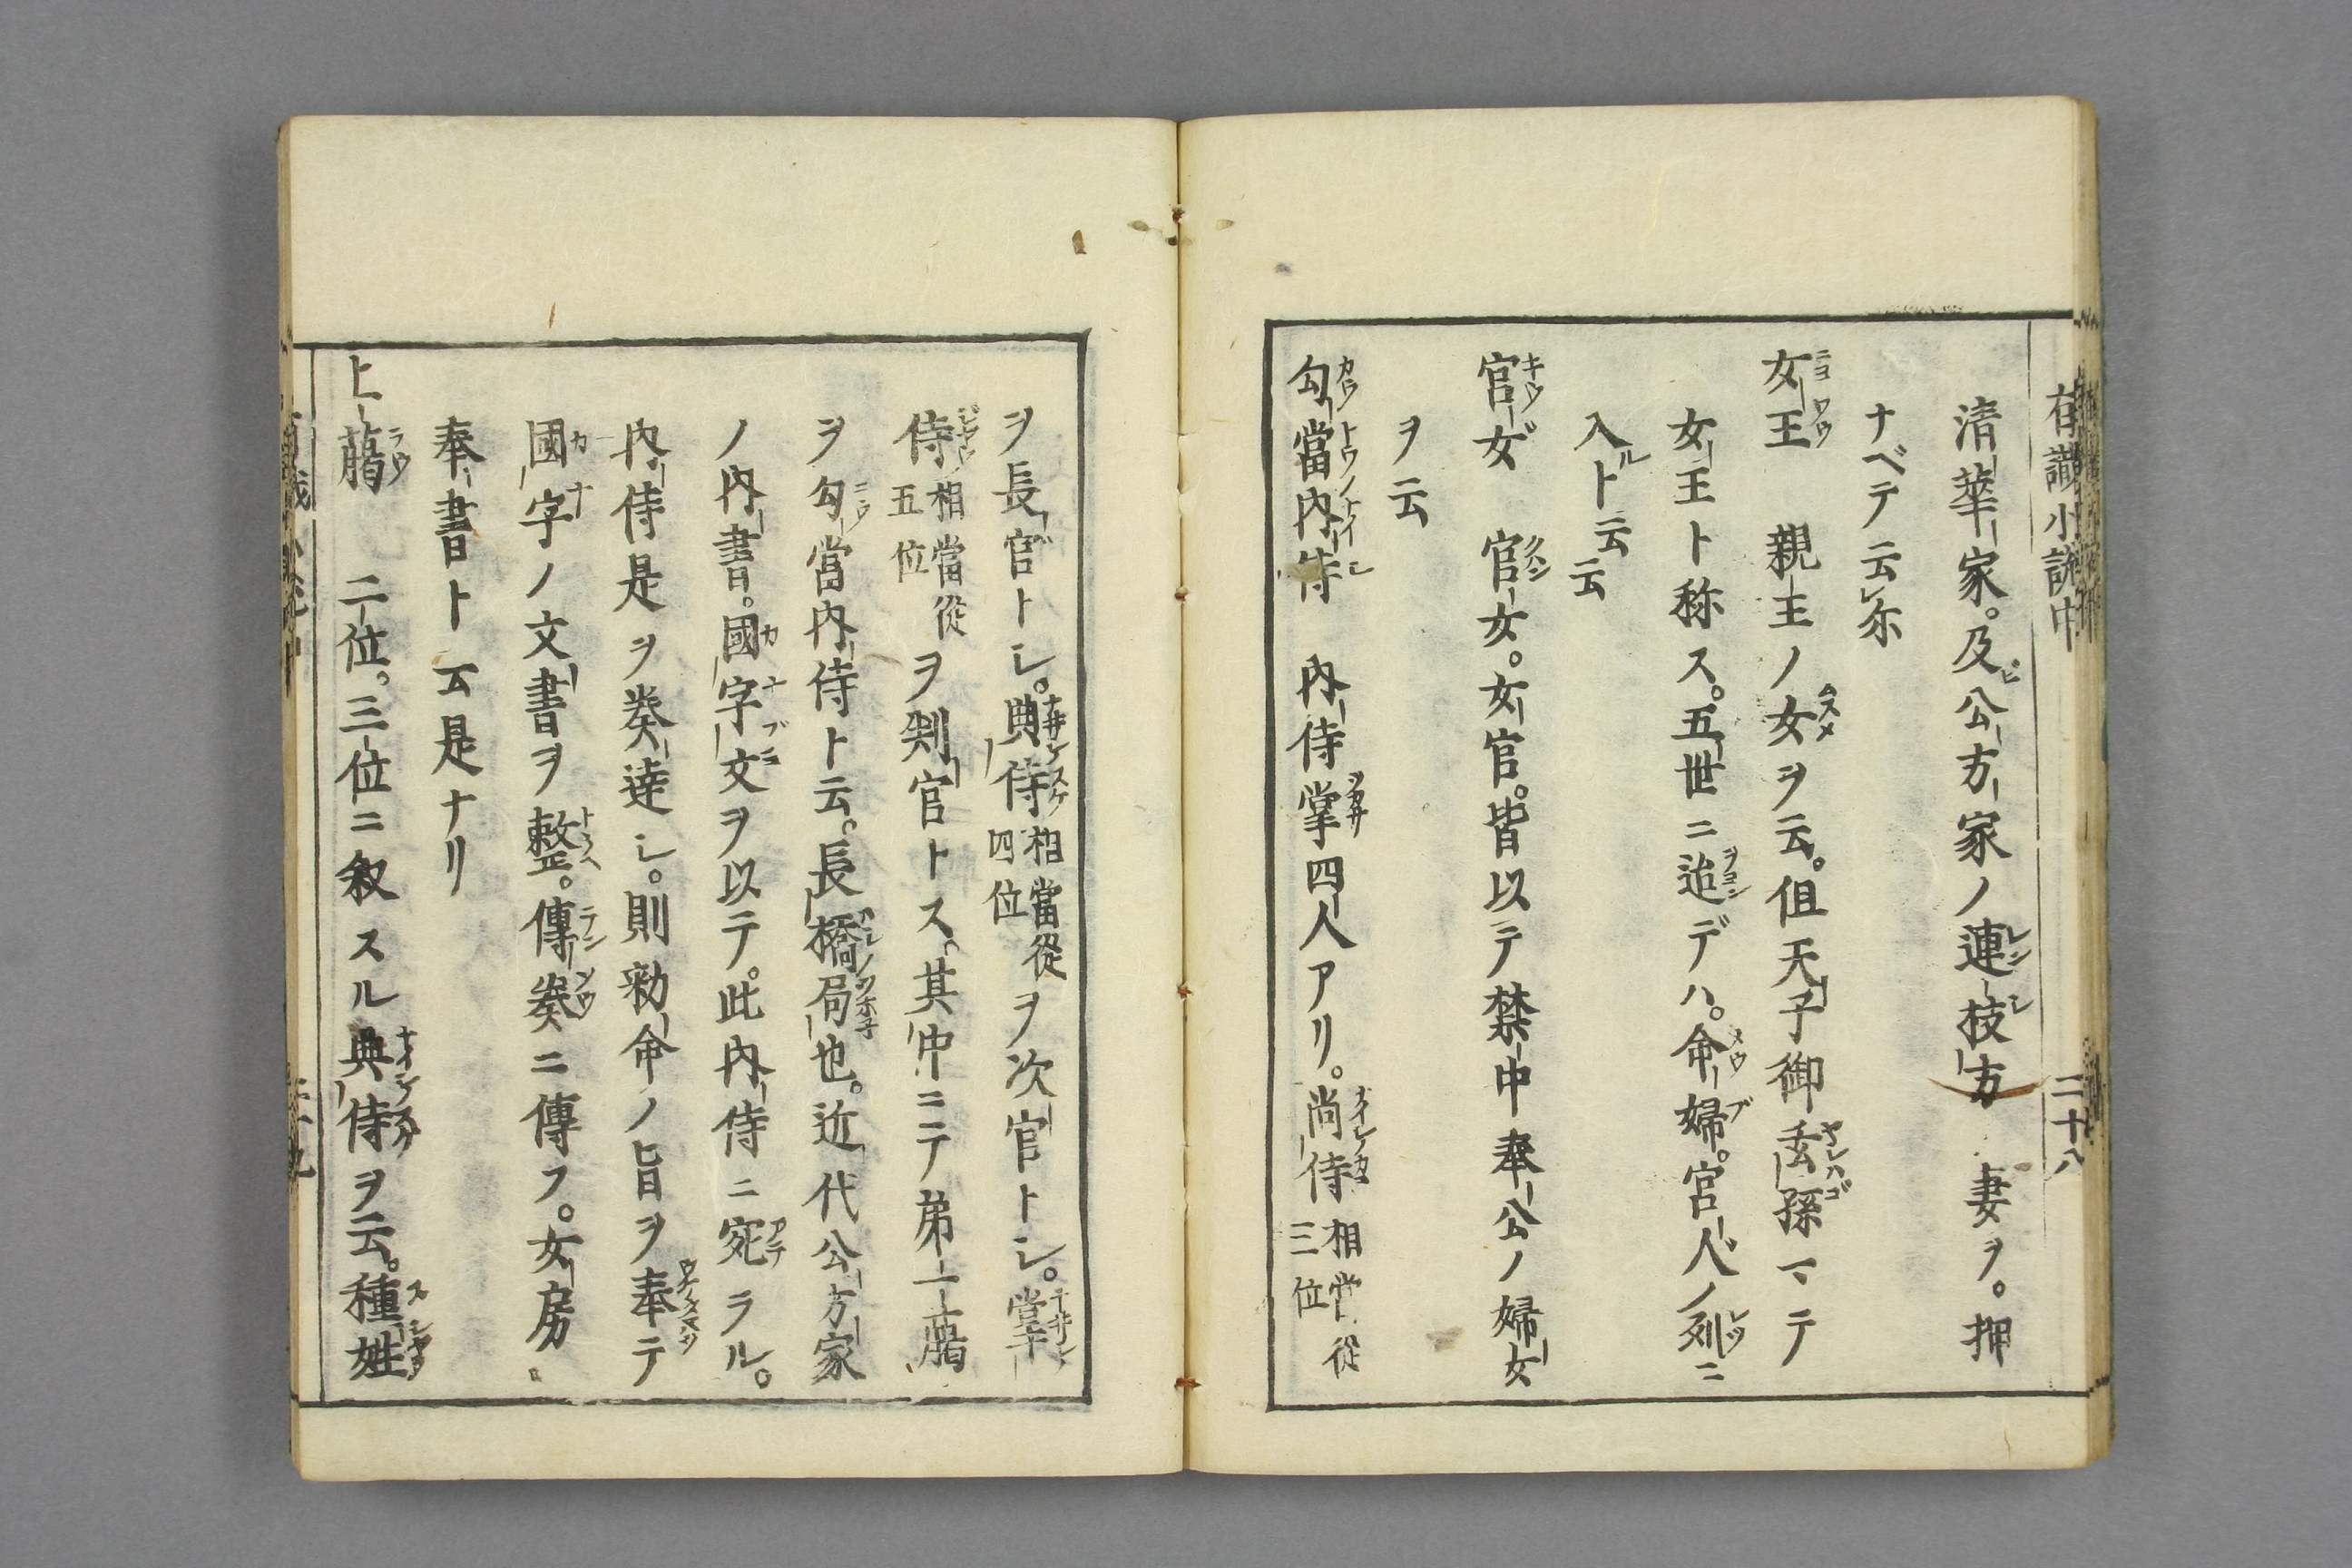 有識小説中 二十八
清華家。及ビ公方家ノ連枝方 妻ヲ。押
ナベテ云レ尓
女王 親王ノ女ヲ云。但天子御玄孫マテ
女王ト称ス。五世ニ迨デハ。命婦。宮人ノ列ニ
入ルト云云
官女 官女。女官。皆以テ禁中奉公ノ婦女
ヲ云
勾當内侍 内侍掌四人アリ。尚侍相當從三位
ヲ長官トシ。典侍相當從四位ヲ次官トシ。掌
侍相當從五位ヲ判官トス。其中ニテ第一﨟
ヲ勾當内侍ト云。長橋局也。近代公方家
ノ内書。國字文ヲ以テ。此内侍ニ宛ラル。
内侍是ヲ奏達シ。則勅命ノ旨ヲ奉テ
國字ノ文書ヲ整。傳奏ニ傳フ。女房
奉書ト云是ナリ
上﨟 二位。三位ニ叙スル典侍ヲ云。種姓